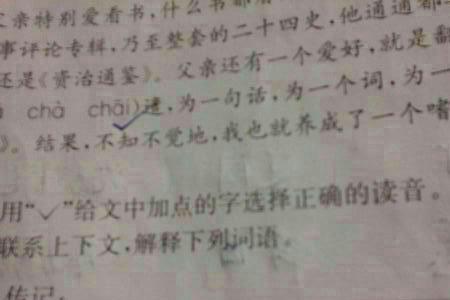 父亲特别爱看书,什么书都
事评论专辑,乃至整套的二十四史,他通通都
还是《资治通鉴》。父亲还有一个爱好,就是翻
chà chāi)遣,为一句话,为一个词,为一
》。结果,不知不觉地,我也就养成了一个嗜
用“✓”给文中加点的字选择正确的读音。
联系上下文,解释下列词语。
传记: